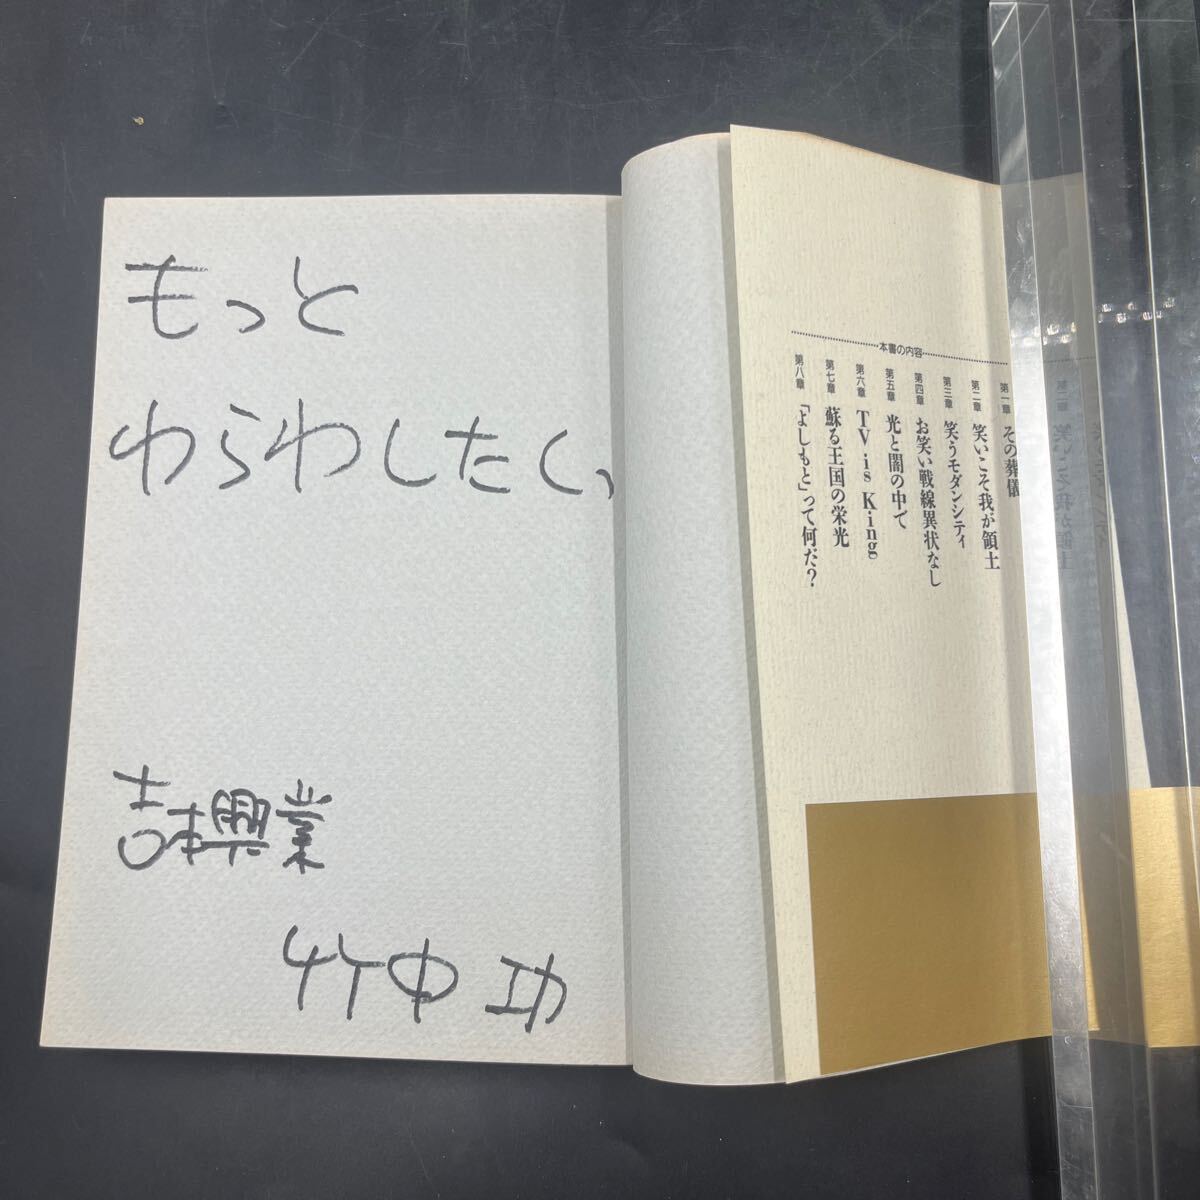 もっと
わらわしたく、
吉本興業
竹中 功
本書の内容
第一章 その葬儀
第二章 笑いこそ我が領土
第三章 笑うモダンシティ
第四章 お笑い戦線異状なし
第五章 光と闇の中で
第六章 TV is King
第七章 蘇る王国の栄光
第八章 「よしもと」って何だ?